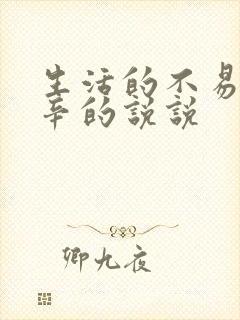 生活的不易
辛的说说
卿九夜